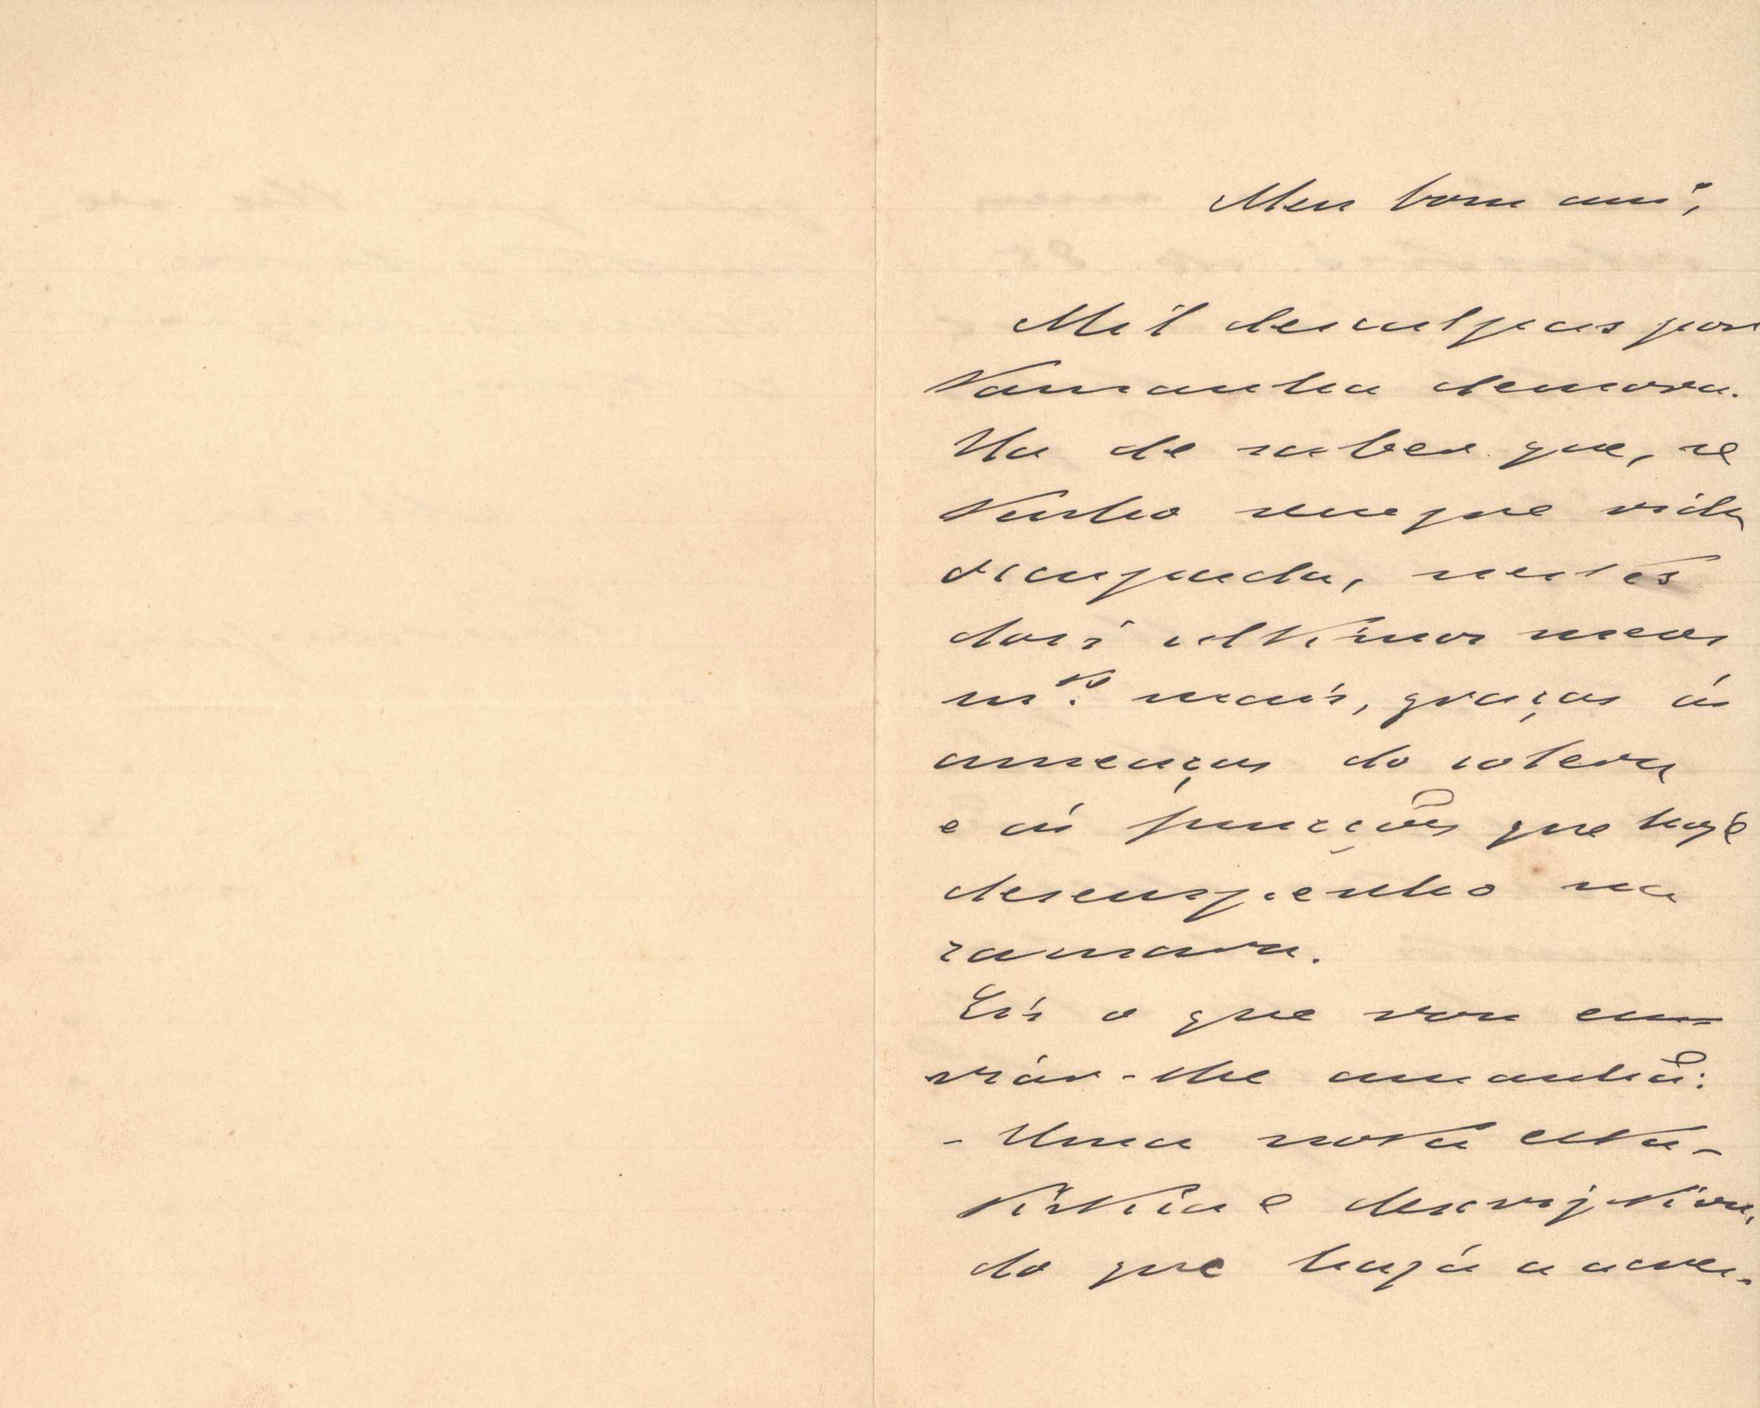 Meu bom am.º,
Mil desculpas por
tamanha demora.
Ha de saber que, se
tenho sempre vida
occupada, nestes
dois ultimos meses
m.to mais, graças ás
ameaças do colera
e ás funcções que hoje
desempenho na
camara.
Eis o que vou en-
viar-lhe amanhã:
- Uma nota esta-
tistica e descriptiva,
do que haja a acres-